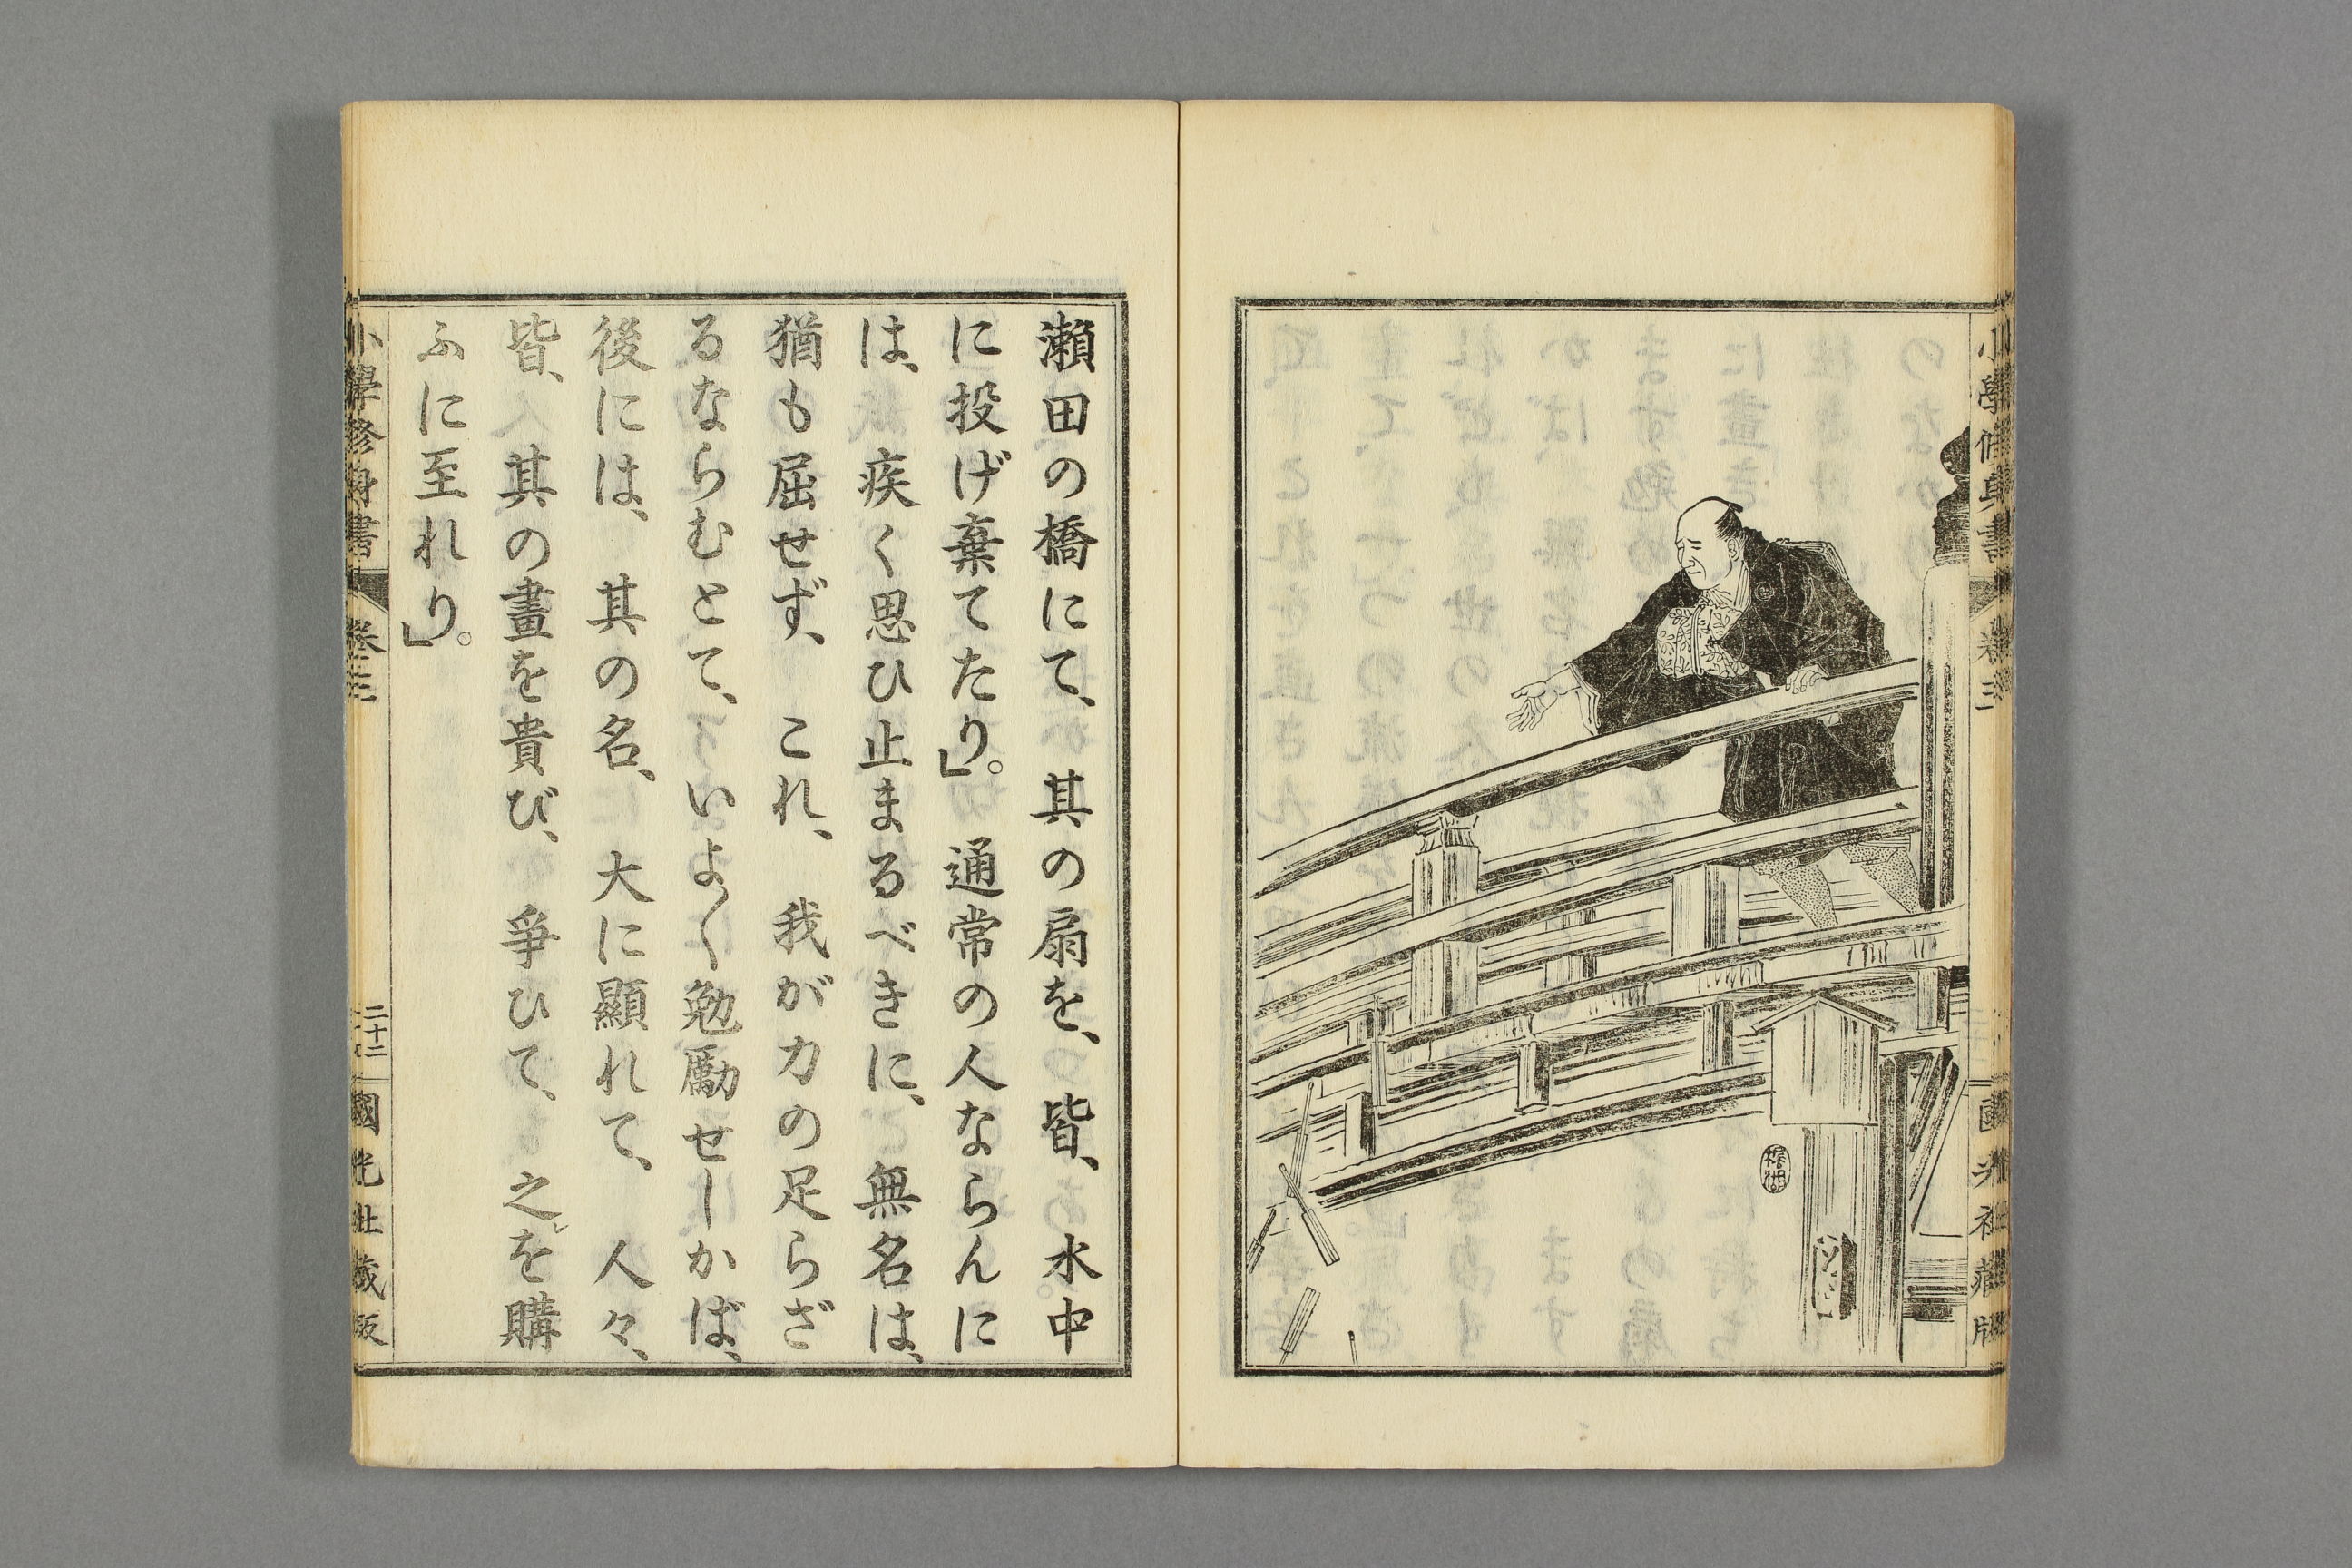 小學修身書 卷三 國光社藏版
瀨田の橋にて、其の扇を、皆、水中
に投げ棄てたり」。通常の人ならんに
は、疾く思ひ止まるべきに、無名は、
猶も屈せず、これ、我が力の足らざ
るならむとて、いよ〱勉勵せしかば、
後には、其の名、大に顯れて、人々、
皆、其の畫を貴び、爭ひて、之を購
ふに至れり」。
小學修身書 卷三 二十二 國光社藏版